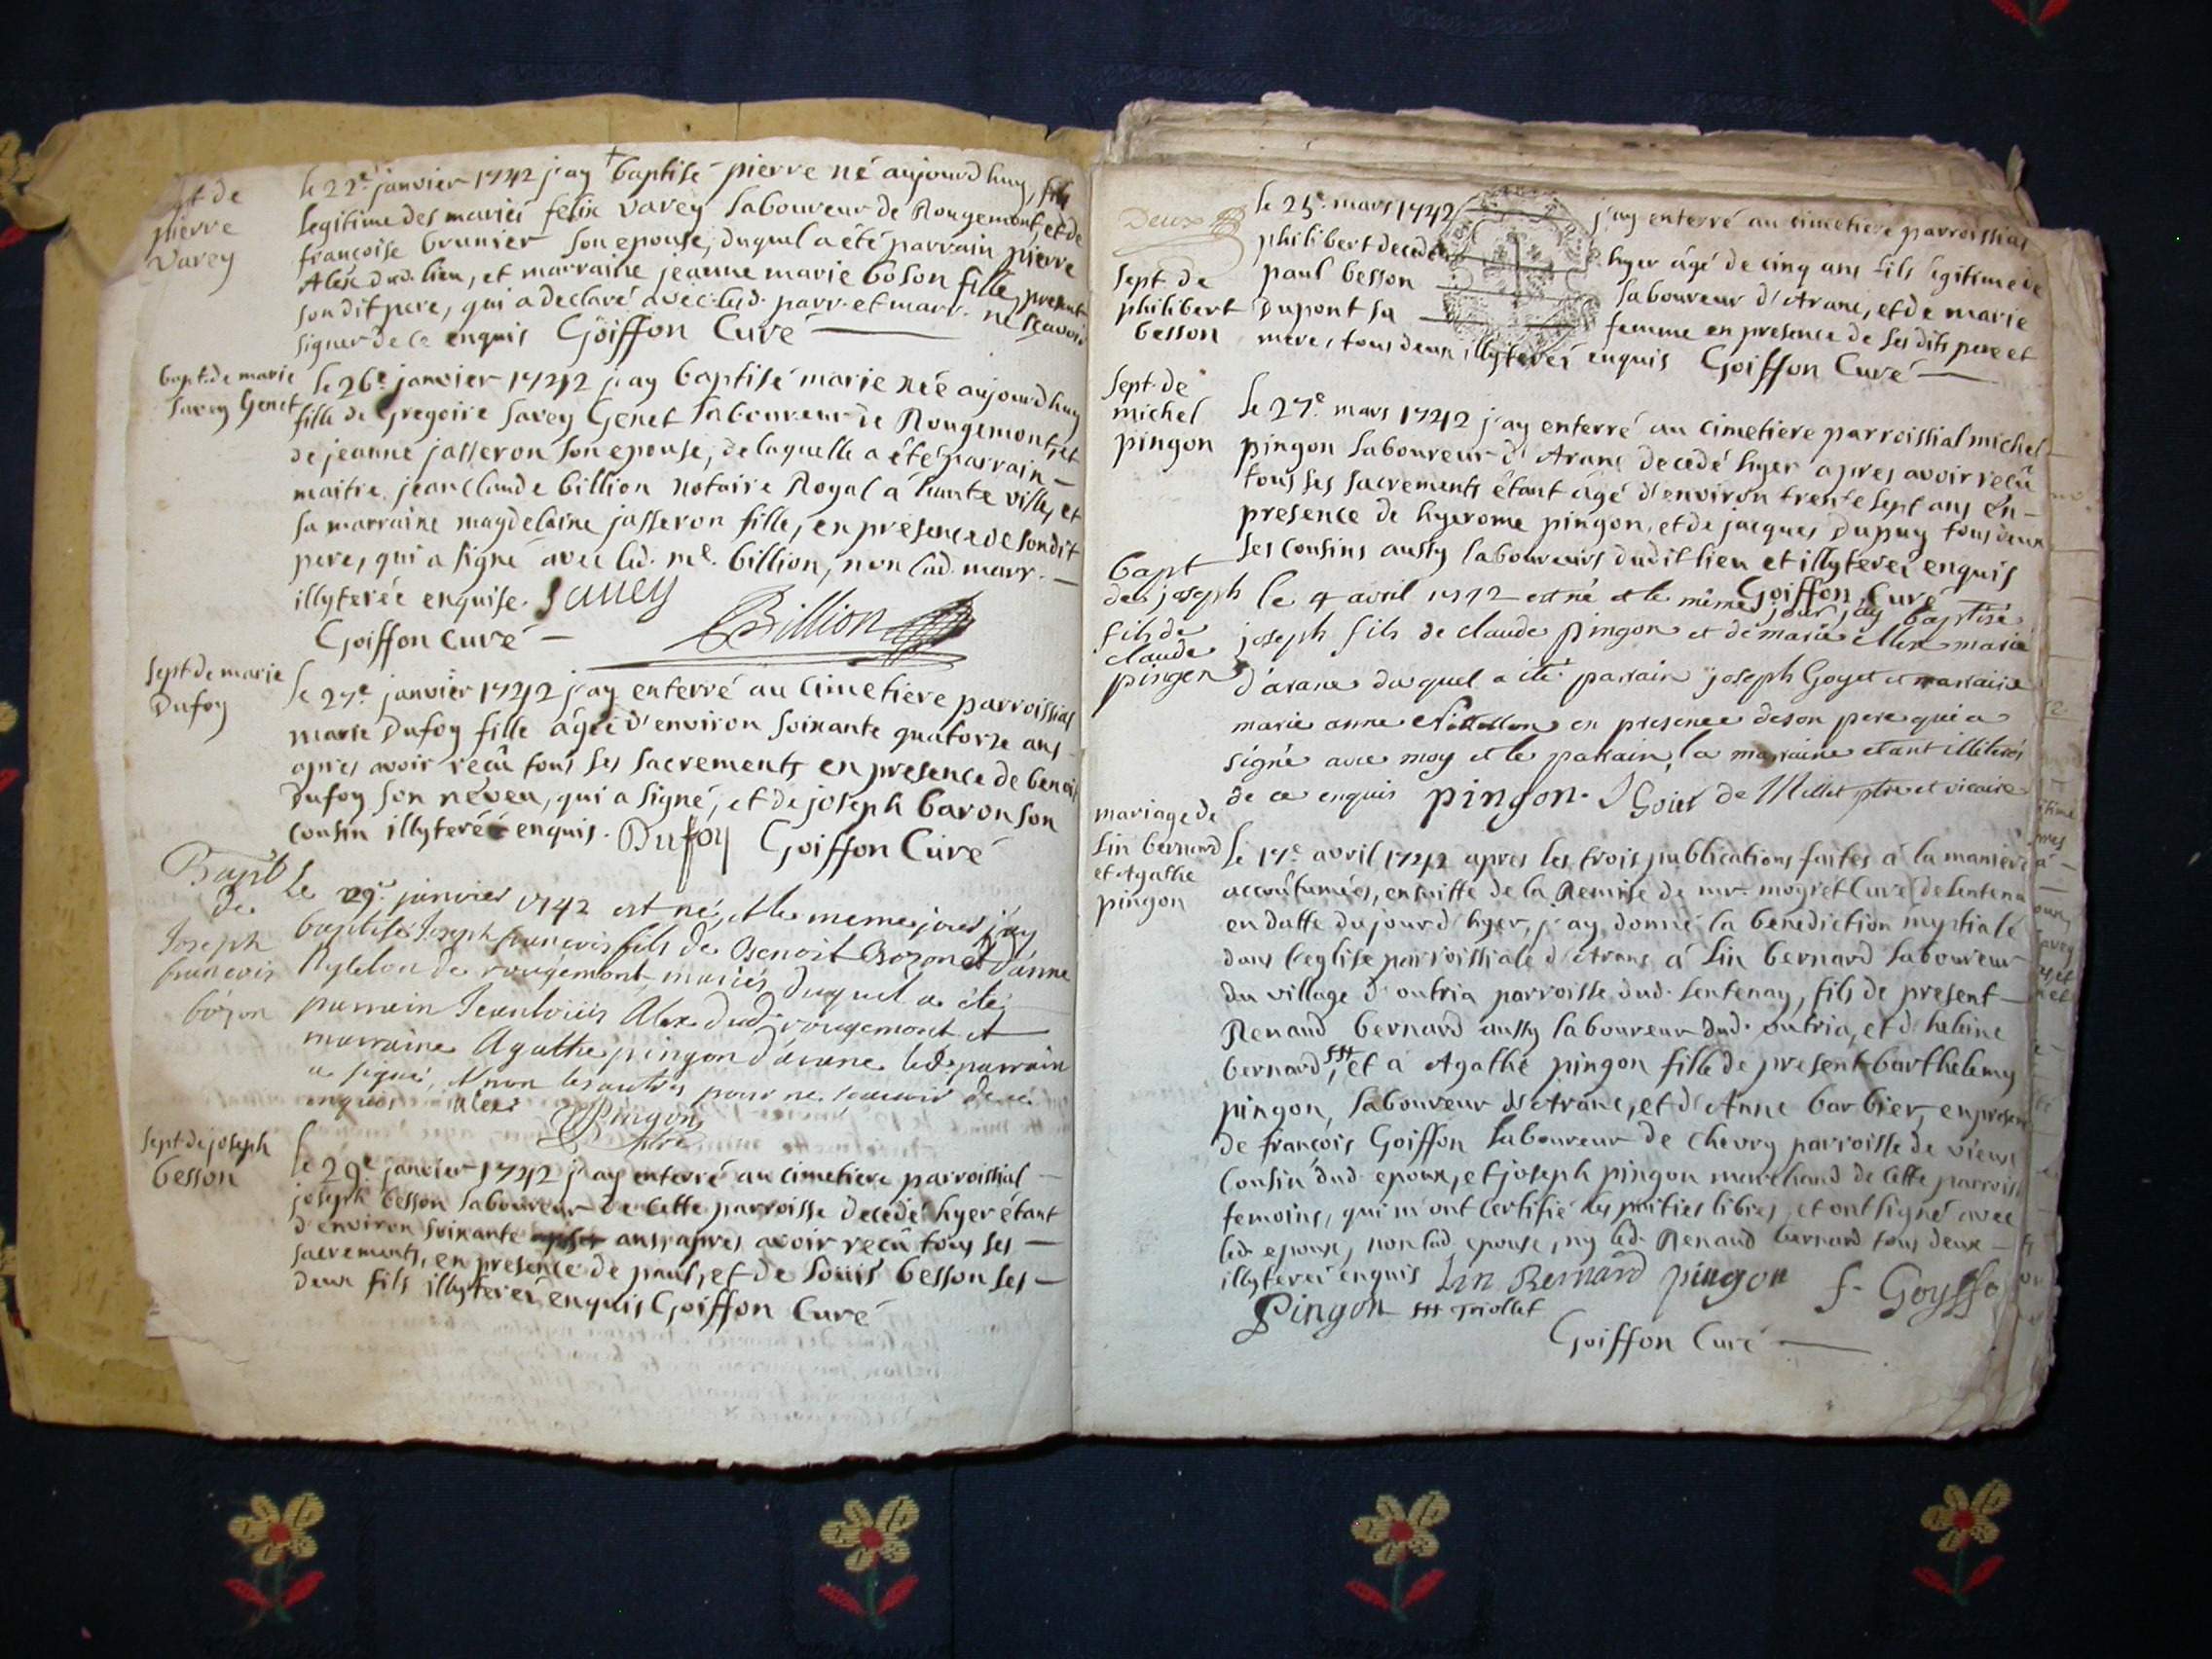 pierre
varey
le 22e janvier 1742 j'ay baptisé pierre né aujourd'huy, fils
legitime des mariés felix varey laboureur de Rougemont, et de
françoise brunier son epouse, duquel a été parrain pierre
Alex dud. lieu, et marraine jeanne marie boson fille, present
son dit pere, qui a declaré avec led. parr. et marr. ne sçavoir
signer de ce enquis Goiffon Curé
bapt. de marie
Savey Genet
le 26e janvier 1742 j'ay baptisé marie née aujourd'huy
fille de Gregoire Savey Genet laboureur de Rougemont, et
de jeanne jasseron son epouse, de laquelle a été parrain
maitre jean Claude billion notaire Royal à haute ville, et
sa marraine magdelaine jasseron fille, en présence de son dit
pere, qui a signé avec led. me. billion, non lad. marr.
illyterée enquise. Savey
Billion
Goiffon Curé
sept. de marie
Dufoy
le 27e janvier 1742 j'ay enterré au cimetiere parroissial
marie Dufoy fille âgée d'environ soixante quatorze ans
apres avoir reçû tous ses sacrements en presence de benoit
Dufoy son néveu, qui a signé, et de joseph baron son
cousin illyteré enquis. Dufoy Goiffon Curé
Bapt
de
Joseph
francois
bozon
Le 29e janvier 1742 est né, et le meme jour j'ay
baptisé Joseph francois fils de Benoit Bozon et d'anne
de rougemont mariés, duquel a été
parrain Jean louis Alex dud. rougemont et
marraine Agathe pingon d'arane led. parrain
a signé, et non les autres pour ne sçavoir de ce
enquis alex Pingon
sept. de joseph
besson
le 29e janvier 1742 j'ay enterré au cimetiere parroissial
joseph besson laboureur de cette parroisse decedé hyer étant
d'environ soixante ans, apres avoir reçû tous ses
sacrements, en presence de paul, et de Louis besson ses
deux fils illyterés enquis Goiffon Curé
Deux
sept. de
philibert
besson
le 25e mars 1742 j'ay enterré au cimetiere parroissial
philibert decedé hyer âgé de cinq ans fils legitime de
paul besson laboureur d'Arane, et de marie
Dupont sa femme en presence de ses dits pere et
mere, tous deux illyterés enquis Goiffon Curé
sept. de
michel
pingon
le 27e mars 1742 j'ay enterré au cimetiere parroissial michel
pingon laboureur d'Arane decedé hyer apres avoir reçû
tous ses sacrements étant âgé d'environ trente sept ans en
presence de hyerome pingon, et de jacques Dupuy tous deux
ses cousins aussy laboureurs dudit lieu et illyterés enquis
Goiffon Curé
bapt
de joseph
fils de
claude
pingon
le 4 avril 1742 est né et le même jour j'ay baptisé
joseph fils de claude Pingon et de marie Alex mariés
d'arane duquel a été parrain joseph Goyet et marraine
marie anne en presence de son pere qui a
signé avec moy et le parrain, la marraine etant illiterés
de ce enquis pingon. J Goiet de Millet ptre et vicaire
mariage de
Lin bernard
et Agathe
pingon
le 17e avril 1742 apres les trois publications faites à la maniere
accoûtumées, ensuitte de la Remise de mr. moyret Curé de Lentena
en datte du jourd'hyer, j'ay donné la benediction nuptiale
dans l'eglise parroissiale d'Arane à Lin bernard laboureur
du village d'outria parroisse dud. Lentenay, fils de present
Renaud bernard aussy laboureur dud. outria, et d'helaine
bernard, et à Agathe pingon fille de present barthelemy
pingon, laboureur d'Arane, et d'Anne barbier, en presen
de françois Goiffon laboureur de Chevry parroisse de vieux
cousin dud. epoux, et joseph pingon marchand de cette parroiss
temoins, qui m'ont certifié les parties libres, et ont signé avec
led. epoux, non lad. epouse, ny led. Renaud bernard tous deux
illyterés enquis Lin Bernard pingon f. Goyffo
Pingon ††† Triollet
Goiffon Curé